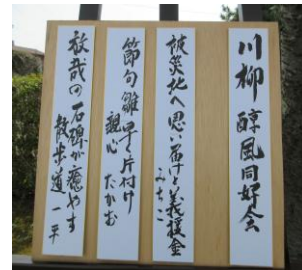 川柳 醇風同好会
被災地へ思い届けと義援金
みちこ
節句雛早く片付け
親心 たかむ
放哉の石碑が癒やす
散歩道 一平